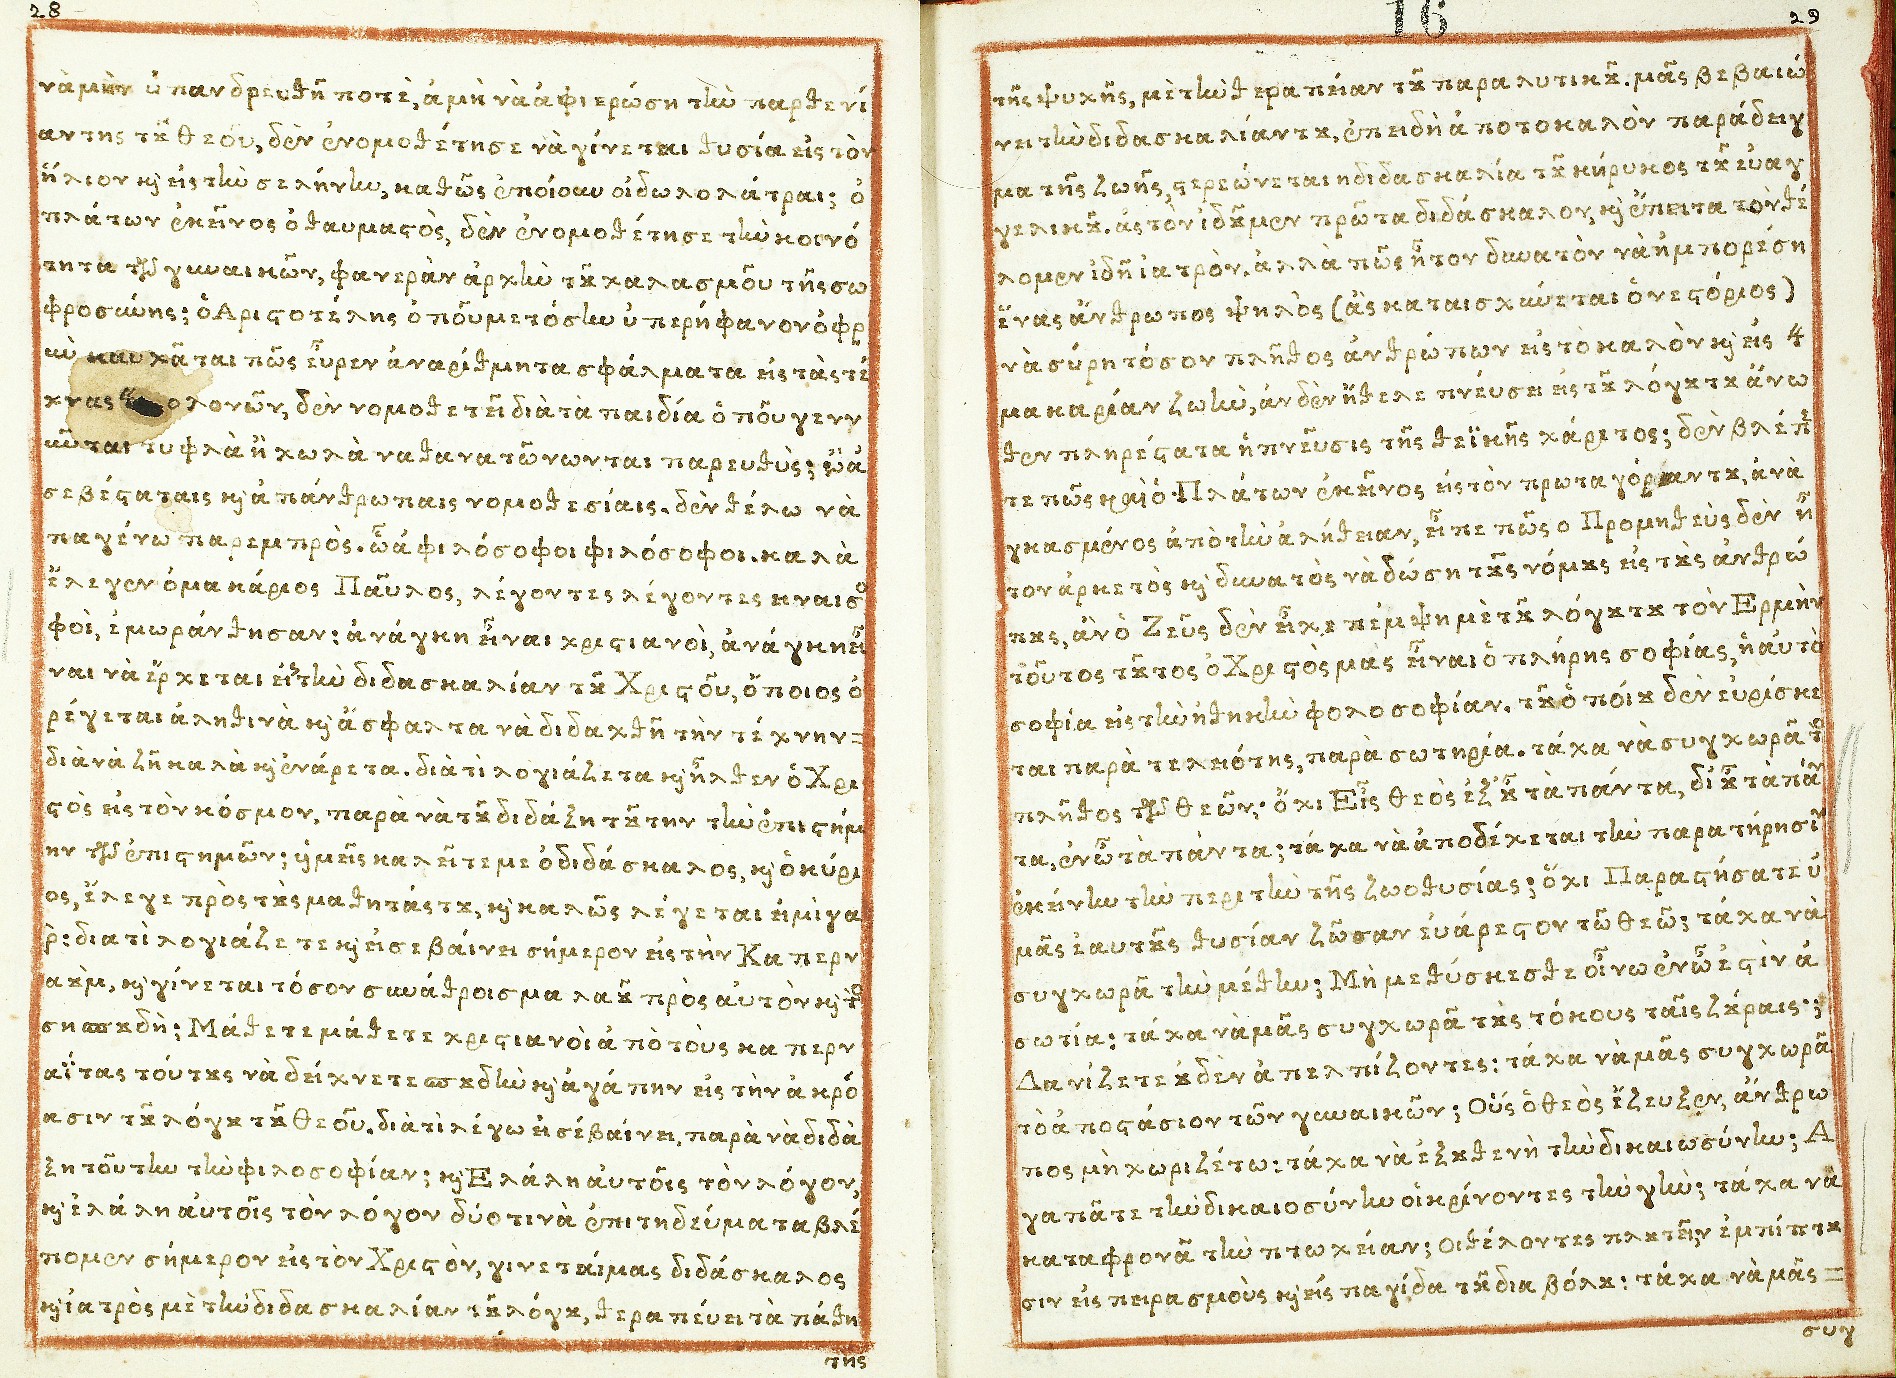 28
νὰ μὴν ὑπανδρευθῇ ποτὲ, ἀμὴ νὰ ἀφιερώσῃ τὴν παρθενί
αν της τοῦ θεοῦ, δὲν ἐνομοθέτησε νὰ γίνεται θυσία εἰς τὸν
ἥλιον κὶ εἰς τὴν σελήνην, καθῶς ἐποίουν οἱ δωλολάτραι; ὁ
πλάτων ἐκεῖνος ὁ θαυμαστὸς, δὲν ἐνομοθέτησε τὴν κοινό
τητα τῶν γυναικῶν, φανερὰν ἀρχὴν τοῦ χαλασμοῦ τῆς σω
φροσύνης; ὁ Αριστοτέλης ὁποῦ με τόσην ὑπερήφανον ὀφρ
ὺν καυχᾶται πῶς εὗρεν ἀναρίθμητα σφάλματα εἰς τὰς τέ
χνας ὁλονῶν, δὲν νομοθετεῖ διὰ τὰ παιδία ὁποῦ γενν
ῶνται τυφλὰ ἢ χωλὰ να θανατώνωνται παρευθὺς; ὢ ἀ
σεβέσταταις κὶ ἀπάνθρωπαις νομοθεσίαις. δὲν θέλω νὰ
παγένω παρεμπρὸς. ὦ ἀφιλόσοφοι φιλόσοφοι. καλὰ
ἔλεγεν ὁ μακάριος Παῦλος, λέγοντες λέγοντες εἶναι σο
φοὶ, ἐμωράνθησαν: ἀνάγκη εἶναι χριστιανοὶ, ἀνάγκη εἶ
ναι νὰ ἔρχεται εἰς τὴν διδασκαλίαν τοῦ Χριστοῦ, ὅποιος ὀ
ρέγεται ἀληθινὰ κὶ ἄσφαλτα νὰ διδαχθῇ τὴν τέχνην =
διὰ νὰ ζῇ καλὰ κὶ ἐνάρετα. διὰ τὶ λογιάζετα κὶ ἦλθεν ὁ Χρι
στὸς εἰς τὸν κόσμον, παρὰ νὰ τοῦ διδάξῃ τούτην τὴν ἐπιστήμ
ην τῶν ἐπιστημῶν; ὑμεῖς καλεῖτε με ὁ διδάσκαλος, κὶ ὁ κύρι
ος, ἔλεγε πρὸς τοὺς μαθητάς του, κὶ καλῶς λέγεται εἰμὶ γα
ρ: διατὶ λογιάζετε κὶ εἰσεβαίνει σήμερον εἰς τὴν Καπερν
αοὺμ, κὶ γίνεται τόσον συνάθροισμα λαοῦ πρὸς αὐτὸν κὶ τό
ση σπουδή; Μάθετε μάθετε χριστιανοὶ ἀπὸ τοὺς καπερν
αΐτας τούτους νὰ δείχνετε σπουδὴν κὶ ἀγάπην εἰς τὴν ἀκρό
ασιν τοῦ λόγου τοῦ θεοῦ. διὰτὶ λέγω εἰσέβαίνει, παρὰ νὰ διδά
ξῃ τούτην τὴν φιλοσοφίαν; κὶ Ελάλη αὐτοῖς τὸν λόγον,
κὶ ἐλάλη αὐτοῖς τὸν λόγον δύο τινὰ ἐπιτηδεύματα βλέ
πομεν σήμερον εἰς τὸν Χριστὸν, γινεταί μας διδάσκαλος
κὶ ἰατρὸς μὲ τὴν διδασκαλίαν τοῦ λόγου, θεραπέύει τὰ πάθη
της
16
29
τῆς ψυχῆς, μὲ τὴν θεραπείαν τοῦ παραλυτικοῦ. μᾶς βεβαιώ
νει τὴν διδασκαλίαν του, ἐπειδὴ ἀπο το καλὸν παράδειγ
μα τῆς ζωῆς, στερεώνεται ἡ διδασκαλία τοῦ κήρυκος τοῦ εὐαγ
γελικοῦ. ἀς τον ἰδοῦμεν πρῶτα διδάσκαλον, κὶ ἔπειτα τον θέ
λομεν ἰδῇ ἰατρὸν. ἀλλὰ πῶς ἦτον δυνατὸν νὰ ἠμπορέσῃ
ἕνας ἄνθρωπος ψηλὸς (ἂς καταισχύνεται ὁ νεστόριος)
νὰ σύρη τόσον πλῆθος ἀνθρώπων εἰς τὸ καλὸν κὶ εἰς τὴ
μακαρίαν ζωὴν, ἀν δὲν ἤθελε πνέυσει εἰς τοῦ λόγου του ἄνω
θεν πληρέστατα ἡ πνεῦσις τῆς θεϊκῆς χάριτος; δὲν βλέπε
τε πῶς καὶ ὁ Πλάτων ἐκεῖνος εἰς τὸν πρωταγόραν του, ἀνὰ
γκασμένος ἀπὸ τὴν ἀλήθειαν, εἶπε πῶς ο Προμηθεὺς δὲν ἦ
τον ἀρκετὸς κὶ δυνατὸς νὰ δώσῃ τοὺς νόμους εἰς τοὺς ἀνθρώ
πους, ἀν ὁ Ζεῦς δὲν εἶχε πέμψῃ μὲ τοῦ λόγου του τὸν Ερμὴν
τοῦτος τοῦτος ὁ Χριστὸς μας εἶναι ὁ πλήρης σοφίας, ἡ αὐτὸ
σοφία εἰς τὴν ἠθηκὴν φολοσοφίαν. τοῦ ὁποίου δὲν εὑρίσκε
ται παρὰ τελειότης, παρὰ σωτηρία. τάχα νὰ συγχωρᾶ τὸ
πλῆθος τῶν θεῶν; ὄχι Εἷς θεὸς ἐξ οὗ τὰ πάντα, δι' οὗ τὰ πάν
τα, ἐν ᾧ τὰ πάντα; τάχα νὰ ἀποδέχεται τὴν παρατήρησιν
ἐκείνην τὴν περι τὴν τῆς ζωοθυσίας; ὄχι Παραστήσατε ὑ
μᾶς ἑαυτοὺς θυσίαν ζῶσαν ἐυάρεστον τῷ θεῷ; τάχα νὰ
συγχωρᾶ τὴν μέθην; Μὴ μεθύσκεσθε οἴνω ἐν ᾧ ἐστὶν ἀ
σωτία: τάχα νὰ μᾶς συγχωρᾶ τοὺς τόκους ταῖς ζούραις;
Δανίζετε οὐδὲν ἀπελπίζοντες: τάχα νὰ μᾶς συγχωρᾶ
τὸ ἀποστάσιον τῶν γυναικῶν; Οὓς ὁ θεὸς ἔζευξεν, ἄνθρω
πος μὴ χωριζέτω: τάχα νὰ ἐξουθενῆ τὴν δικαιωσύνην; Α
γαπᾶτε τὴν δικαιοσύνην οἱ κρίνοντες τὴν γὴν; τάχα νὰ
καταφρονᾶ τὴν πτωχείαν; οι θέλοντες πλουτεῖν, ἐμπίπτου
σιν εἰς πειρασμοὺς κὶ εἰς παγίδα τοῦ διαβόλου: τάχα νὰ μᾶς =
συγ